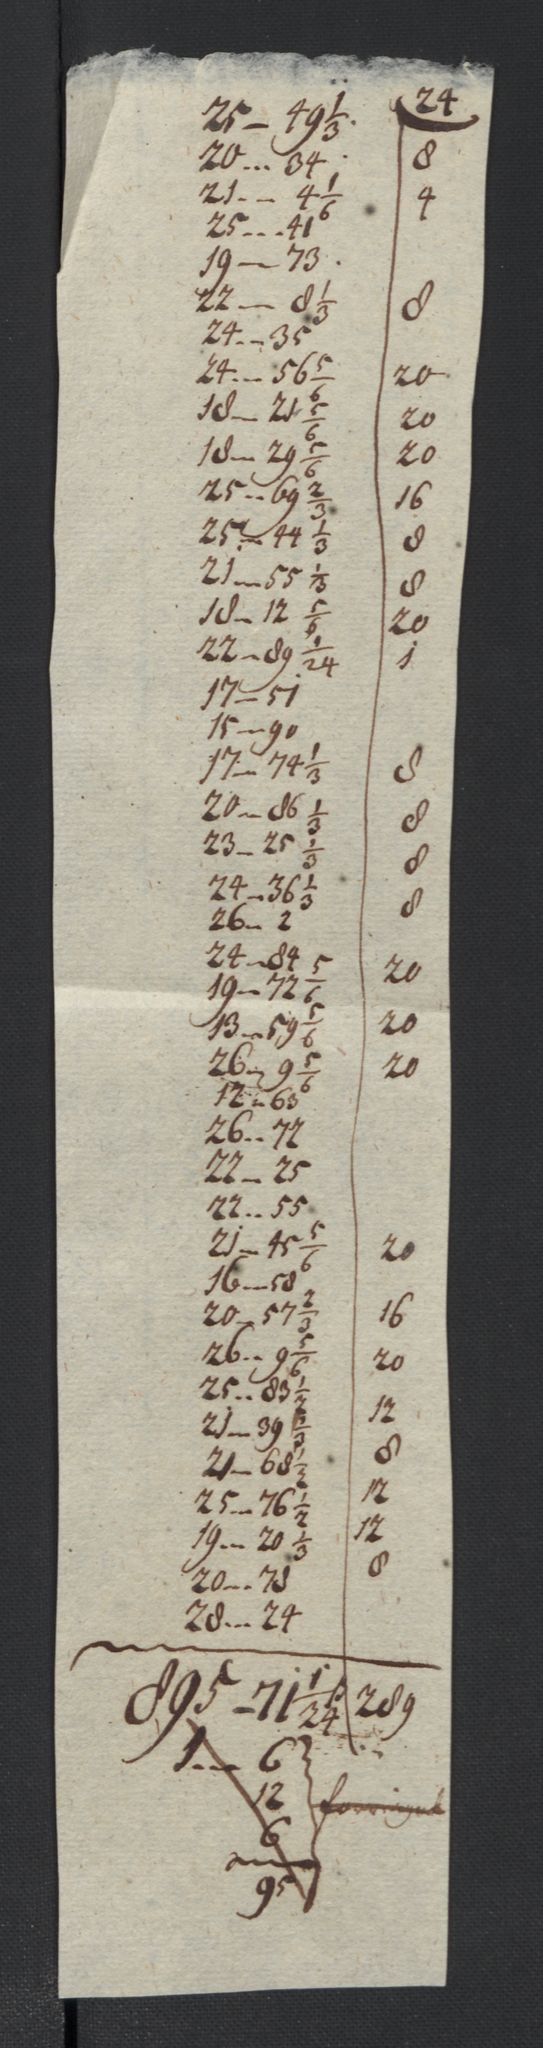 24
25 - 49 1/3. 8
20 ... 34.
21 --- 4 1/6 4
25 ... 41
19 --- 73.
22 --- 8 1/3 8
24 --- 35
24 --- 56 5/6 20
18 -- 21 5/6 20
18 -- 29 5/6 20
25 -- 69 2/3 16
25 -- 44 1/3 8
21 -- 55 1/3 8
18 -- 12 5/6 20
22 -- 89 1/24 1
17 -- 51
15 -- 90
17 -- 74 1/3 8
20 -- 86 1/3 8
23 -- 25 1/3 8
24 -- 36 1/3 8
26 -- 2
24 -- 84
19 -- 72 5/6 20
13 -- 59 5/6 20
26 -- 9 5/6 20
12 -- 63
26 -- 72
22 -- 25
22 -- 55
21 -- 45 5/6 20
16 -- 58
20 -- 57 2/3 16
26 -- 9 5/6 20
25 -- 83 1/2 12
21 -- 39 1/3 8
21 -- 68 1/2 12
25 -- 76 1/2 12
19 -- 20 1/3 8
20 --- 78
28 --- 24
895 - 71 1/24 289
1 --- 6
12
6
95